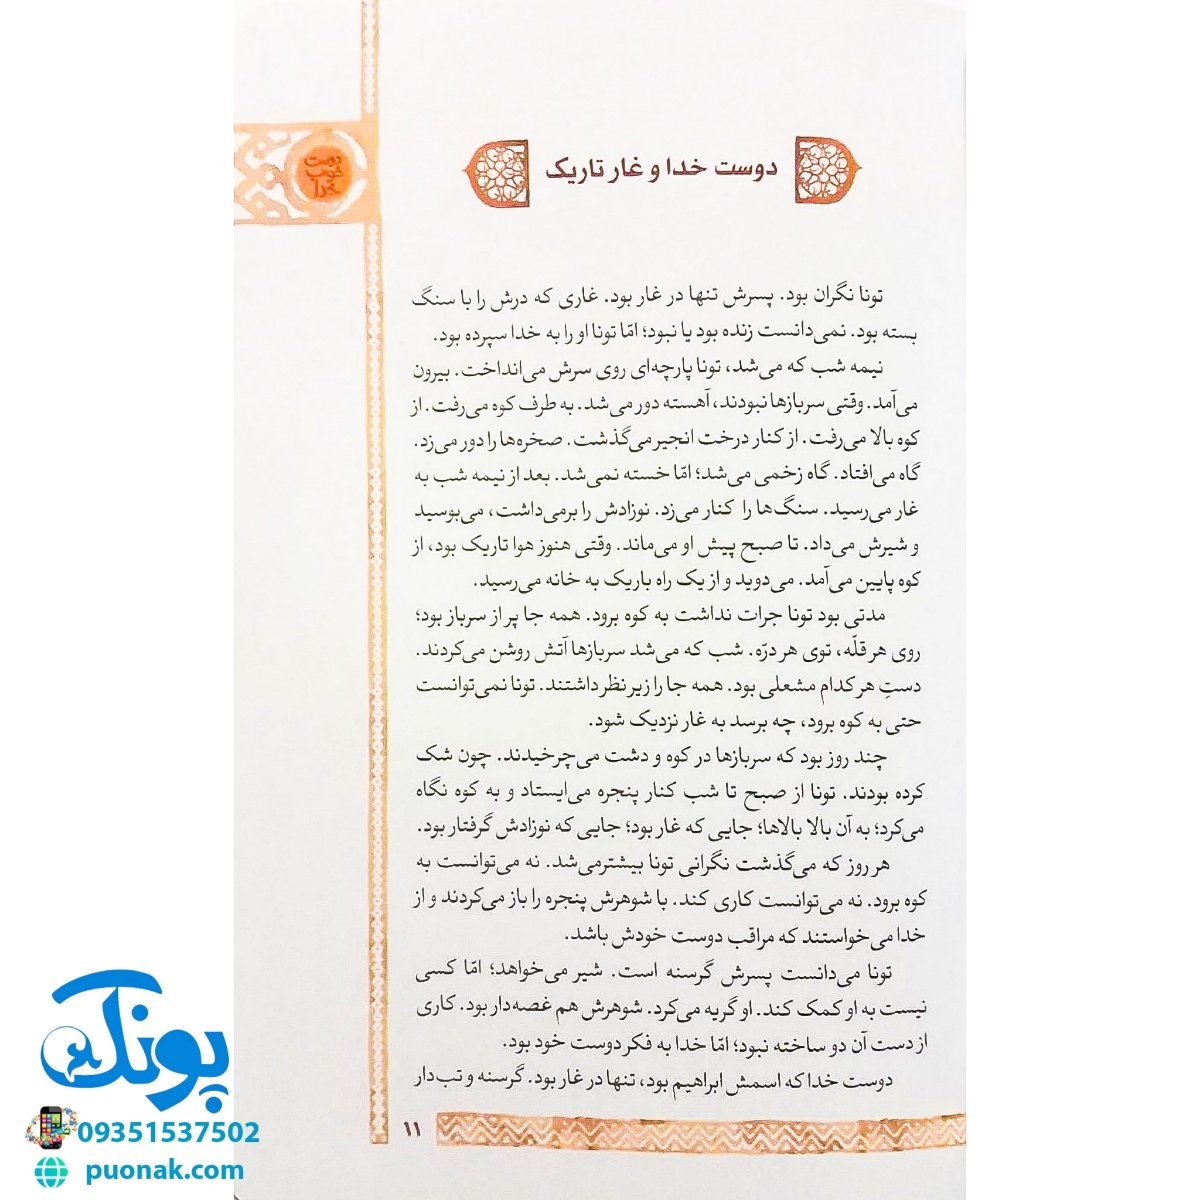 دوست
خوب
خدا
دوست خدا و غار تاریک
تونا نگران بود. پسرش تنها در غار بود. غاری که درش را با سنگ
بسته بود. نمی‌دانست زنده بود یا نبود؛ امّا تونا او را به خدا سپرده بود.
نیمه شب که می‌شد، تونا پارچه‌ای روی سرش می‌انداخت. بیرون
می‌آمد. وقتی سربازها نبودند، آهسته دور می‌شد. به طرف کوه می‌رفت. از
کوه بالا می‌رفت. از کنار درخت انجیر می‌گذشت. صخره‌ها را دور می‌زد.
گاه می‌افتاد. گاه زخمی می‌شد؛ امّا خسته نمی‌شد. بعد از نیمه شب به
غار می‌رسید. سنگ‌ها را کنار می‌زد. نوزادش را برمی‌داشت، می‌بوسید
و شیرش می‌داد. تا صبح پیش او می‌ماند. وقتی هنوز هوا تاریک بود، از
کوه پایین می‌آمد. می‌دوید و از یک راه باریک به خانه می‌رسید.
مدتی بود تونا جرات نداشت به کوه برود. همه جا پر از سرباز بود؛
روی هر قلّه، توی هر درّه. شب که می‌شد سربازها آتش روشن می‌کردند.
دستِ هر کدام مشعلی بود. همه جا را زیر نظر داشتند. تونا نمی‌توانست
حتی به کوه برود، چه برسد به غار نزدیک شود.
چند روز بود که سربازها در کوه و دشت می‌چرخیدند. چون شک
کرده بودند. تونا از صبح تا شب کنار پنجره می‌ایستاد و به کوه نگاه
می‌کرد؛ به آن بالا بالاها؛ جایی که غار بود؛ جایی که نوزادش گرفتار بود.
هر روز که می‌گذشت نگرانی تونا بیشتر می‌شد. نه می‌توانست به
کوه برود. نه می‌توانست کاری کند. با شوهرش پنجره را باز می‌کردند و از
خدا می‌خواستند که مراقب دوست خودش باشد.
تونا می‌دانست پسرش گرسنه است. شیر می‌خواهد؛ امّا کسی
نیست به او کمک کند. او گریه می‌کرد. شوهرش هم غصه‌دار بود. کاری
از دست آن دو ساخته نبود؛ امّا خدا به فکر دوست خود بود.
دوست خدا که اسمش ابراهیم بود، تنها در غار بود. گرسنه و تب‌دار
۱۱
پونک
09351537502
puonak.com